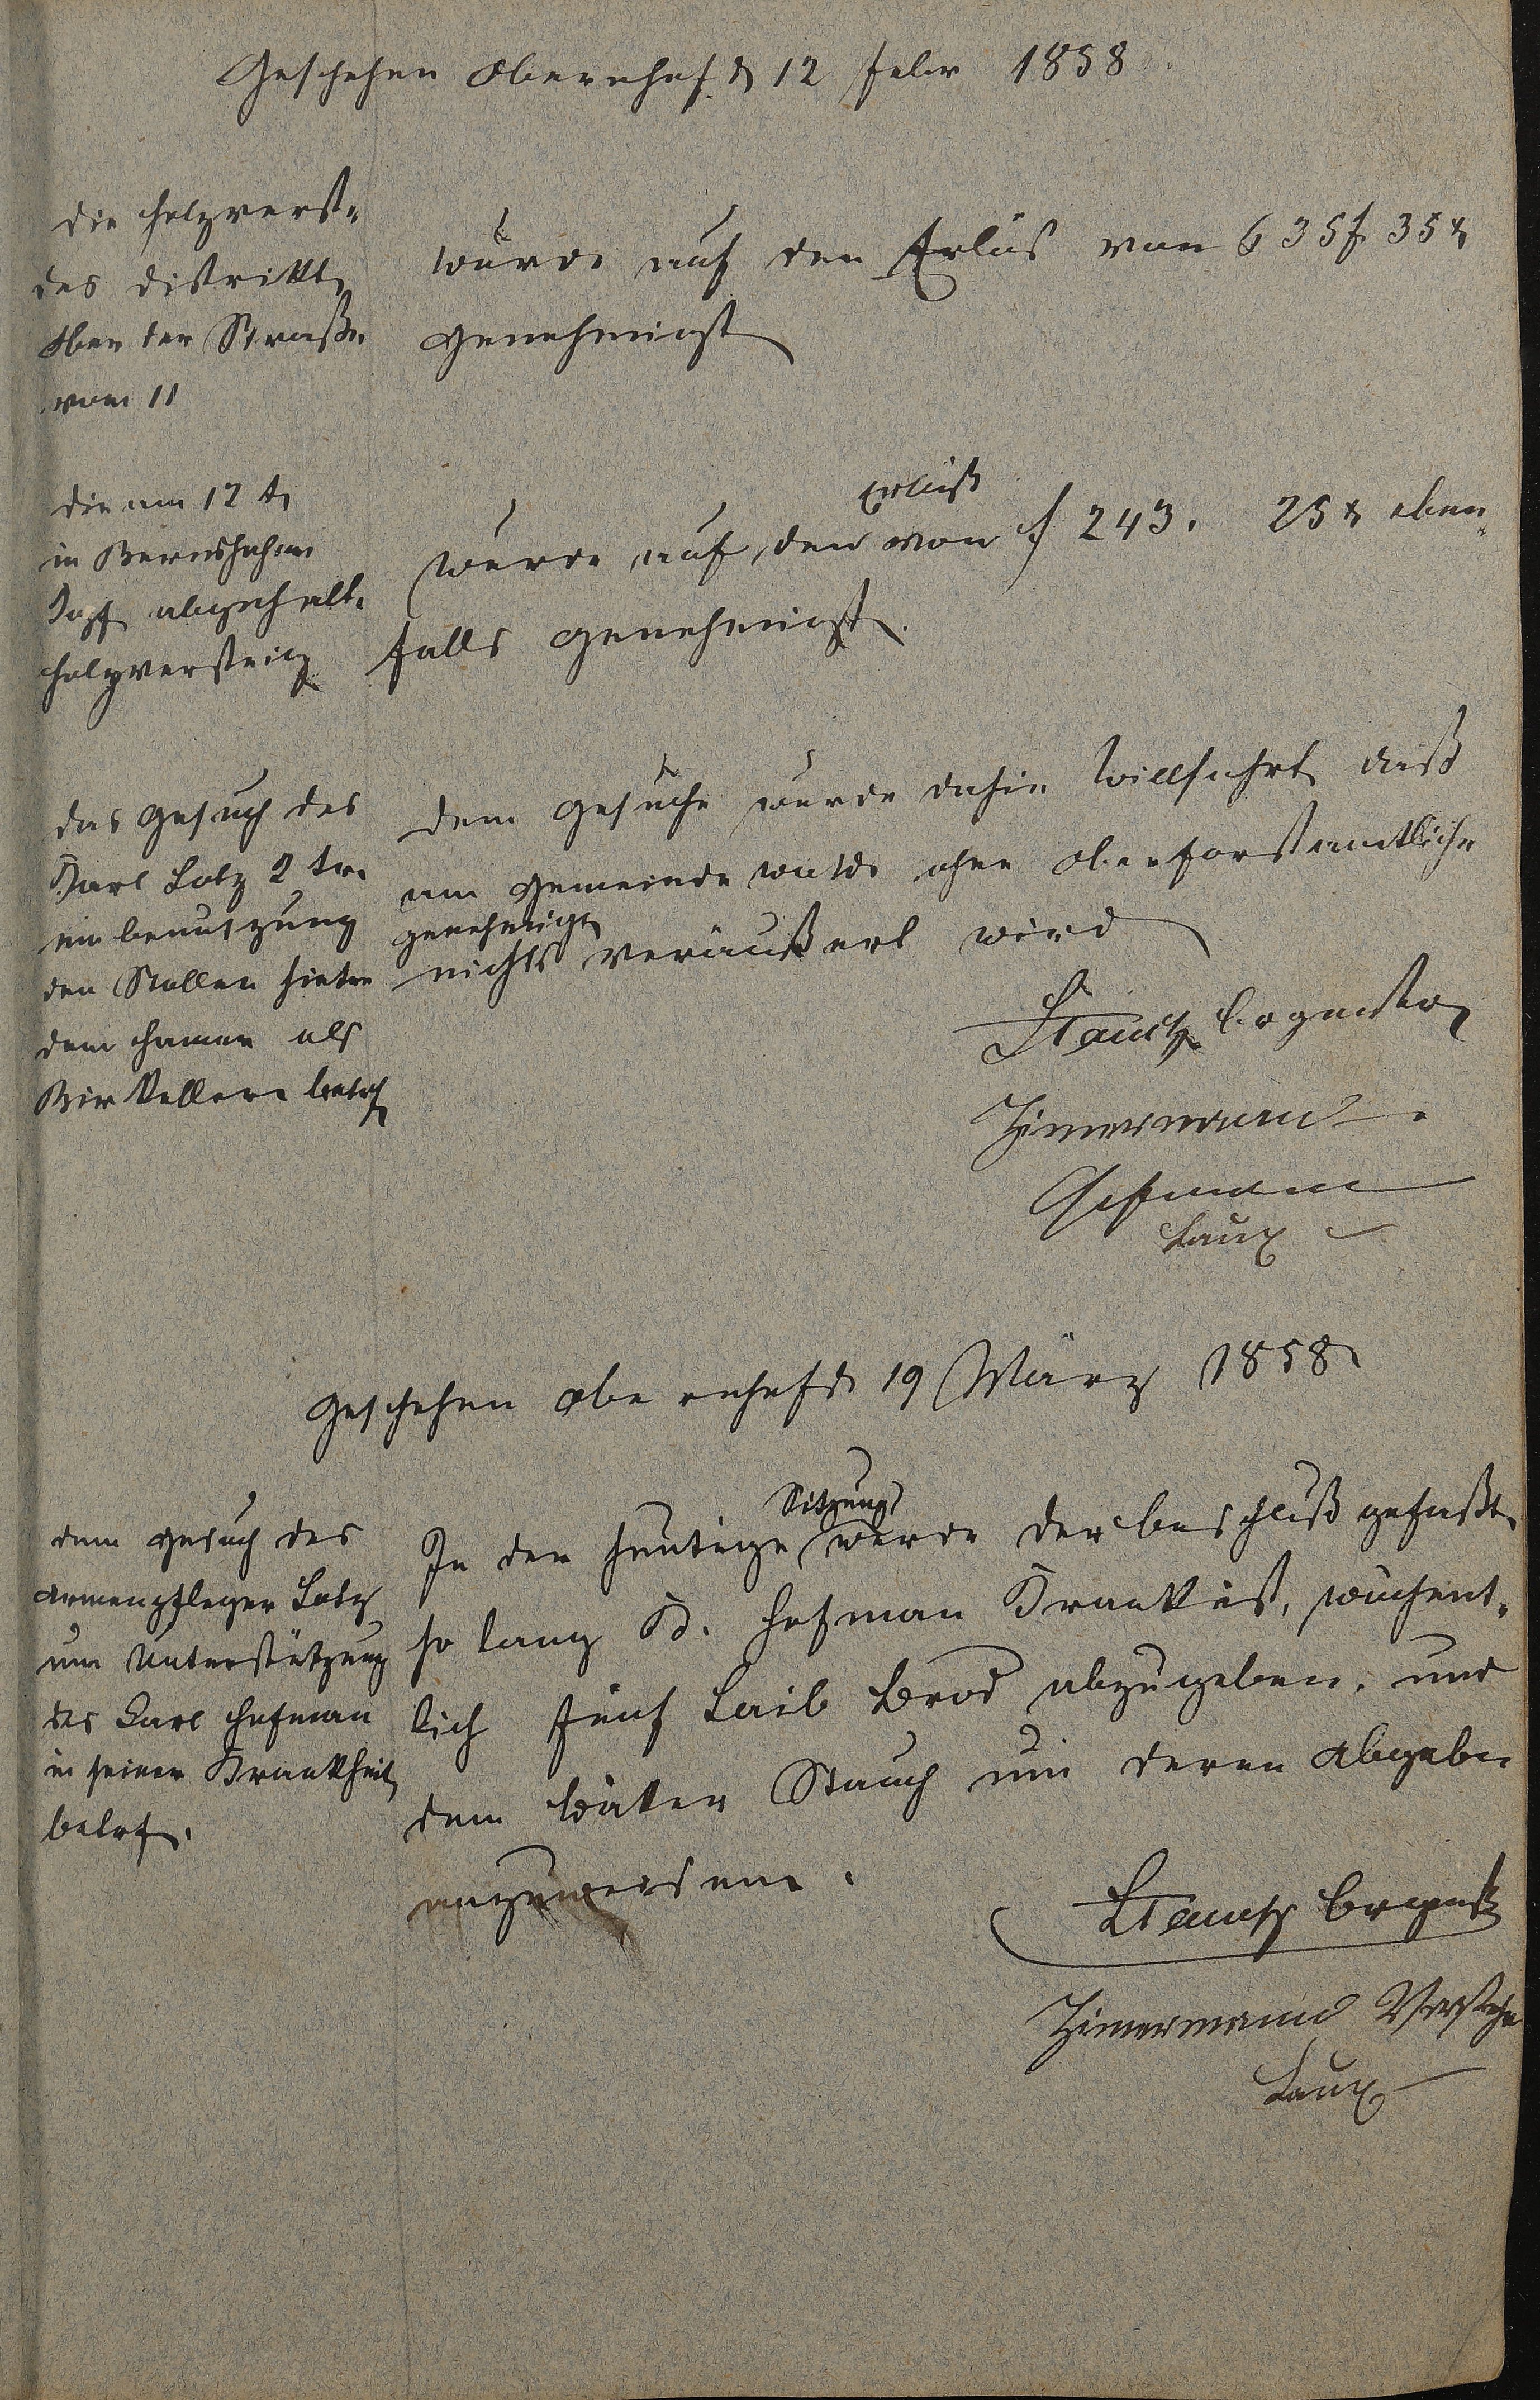 Geschehen Obernhof d 12 Febr 1858.
die Holzverst.
des Distrikt
Ober der Straße
vom 11
wurde auf den Erlös von 635 f 35 x
genehmigt
die am 12 t
in
abgehalt.
Holzversteig
Erlöß
wurde auf den von f 243. 25 x eben-
falls genehmigt.
das Gesuch des
Karl Lotz 2 ter
um benutzung
den Stollen hinter
dem Hamer als
Bir Keller betrf
dem Gesuche wurde dahin Willfahrt daß
am Gemeinde walde ohne Oberforstamtliche
genehmigt
nichts veräußert wird
Stauch Brgmstr
Zimermann
Hofmann
Laux
Geschehen Obernhof d 19 März 1858
dem Gesuch des
Armenpfleger Lotz
um Unterstützung
des Carl Hofman
in seiner Krankheit
betrf.
Sitzung
In der heutige wurde der beschluß gefaßt
so lang K. Hofman Krank ist, wöchent-
lich fünf Laib Brod abzugeben, und
dem Bäker Stauch um deren Abgabe
anzuweisen.
Stauch Brgmst
Zimermann Vorsteher
Laux